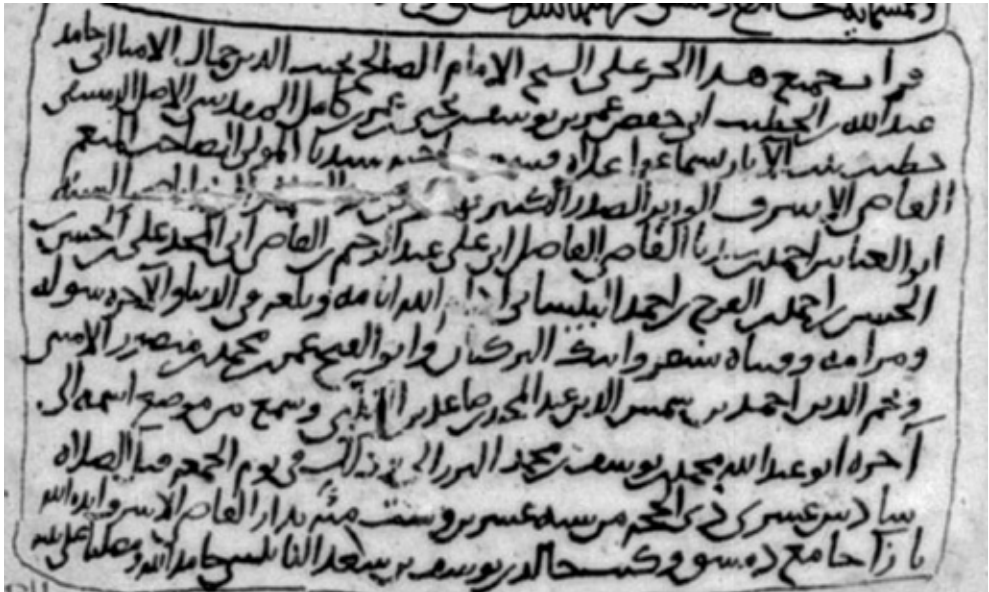 قرأ جميع هذا الجزء على الشيخ الامام الصالح نجيب الدين جمال الامنا ابى حامد
عبد الله بن الخطيب ابى حفص عمر بن يوسف بن يحيى بن عمر بن كامل المقدسى الاصل الدمشقى
خطيب بيت الآبار بسماعه اعلاه سيدنا المولى الصاحب المنعم
القاضى الاشرف الوزير الصدر الكبير السنه
ابو العباس احمد بن القاضى الفاضل ابى على عبد الرحيم بن القاضى ابى المجد على بن الحسن بن
الحسين بن احمد بن الفرج بن احمد البيسانى ادام الله ايامه وبلغه فى الدنيا والآخره سوله
ومرامه وفتاه سنقر وايبك التركيان وابو الفتح عمر بن محمد بن منصور الامينى
ونجم الدين احمد بن شمس الدين عبد المجيد بن صاعد بن وسمع من موضع اسمه الى
آخره ابو عبد الله محمد بن يوسف بن محمد البرزالى وذلك فى يوم الجمعه قبل الصلاه
سادس عشرى ذى الحجه من سنه عشرين وست مئه بدار القاضى الاشرف ايده الله
بازآ جامع دمشق وكتب خالد بن يوسف بن سعد النابلسى حامدا لله ومصليا على نبيه